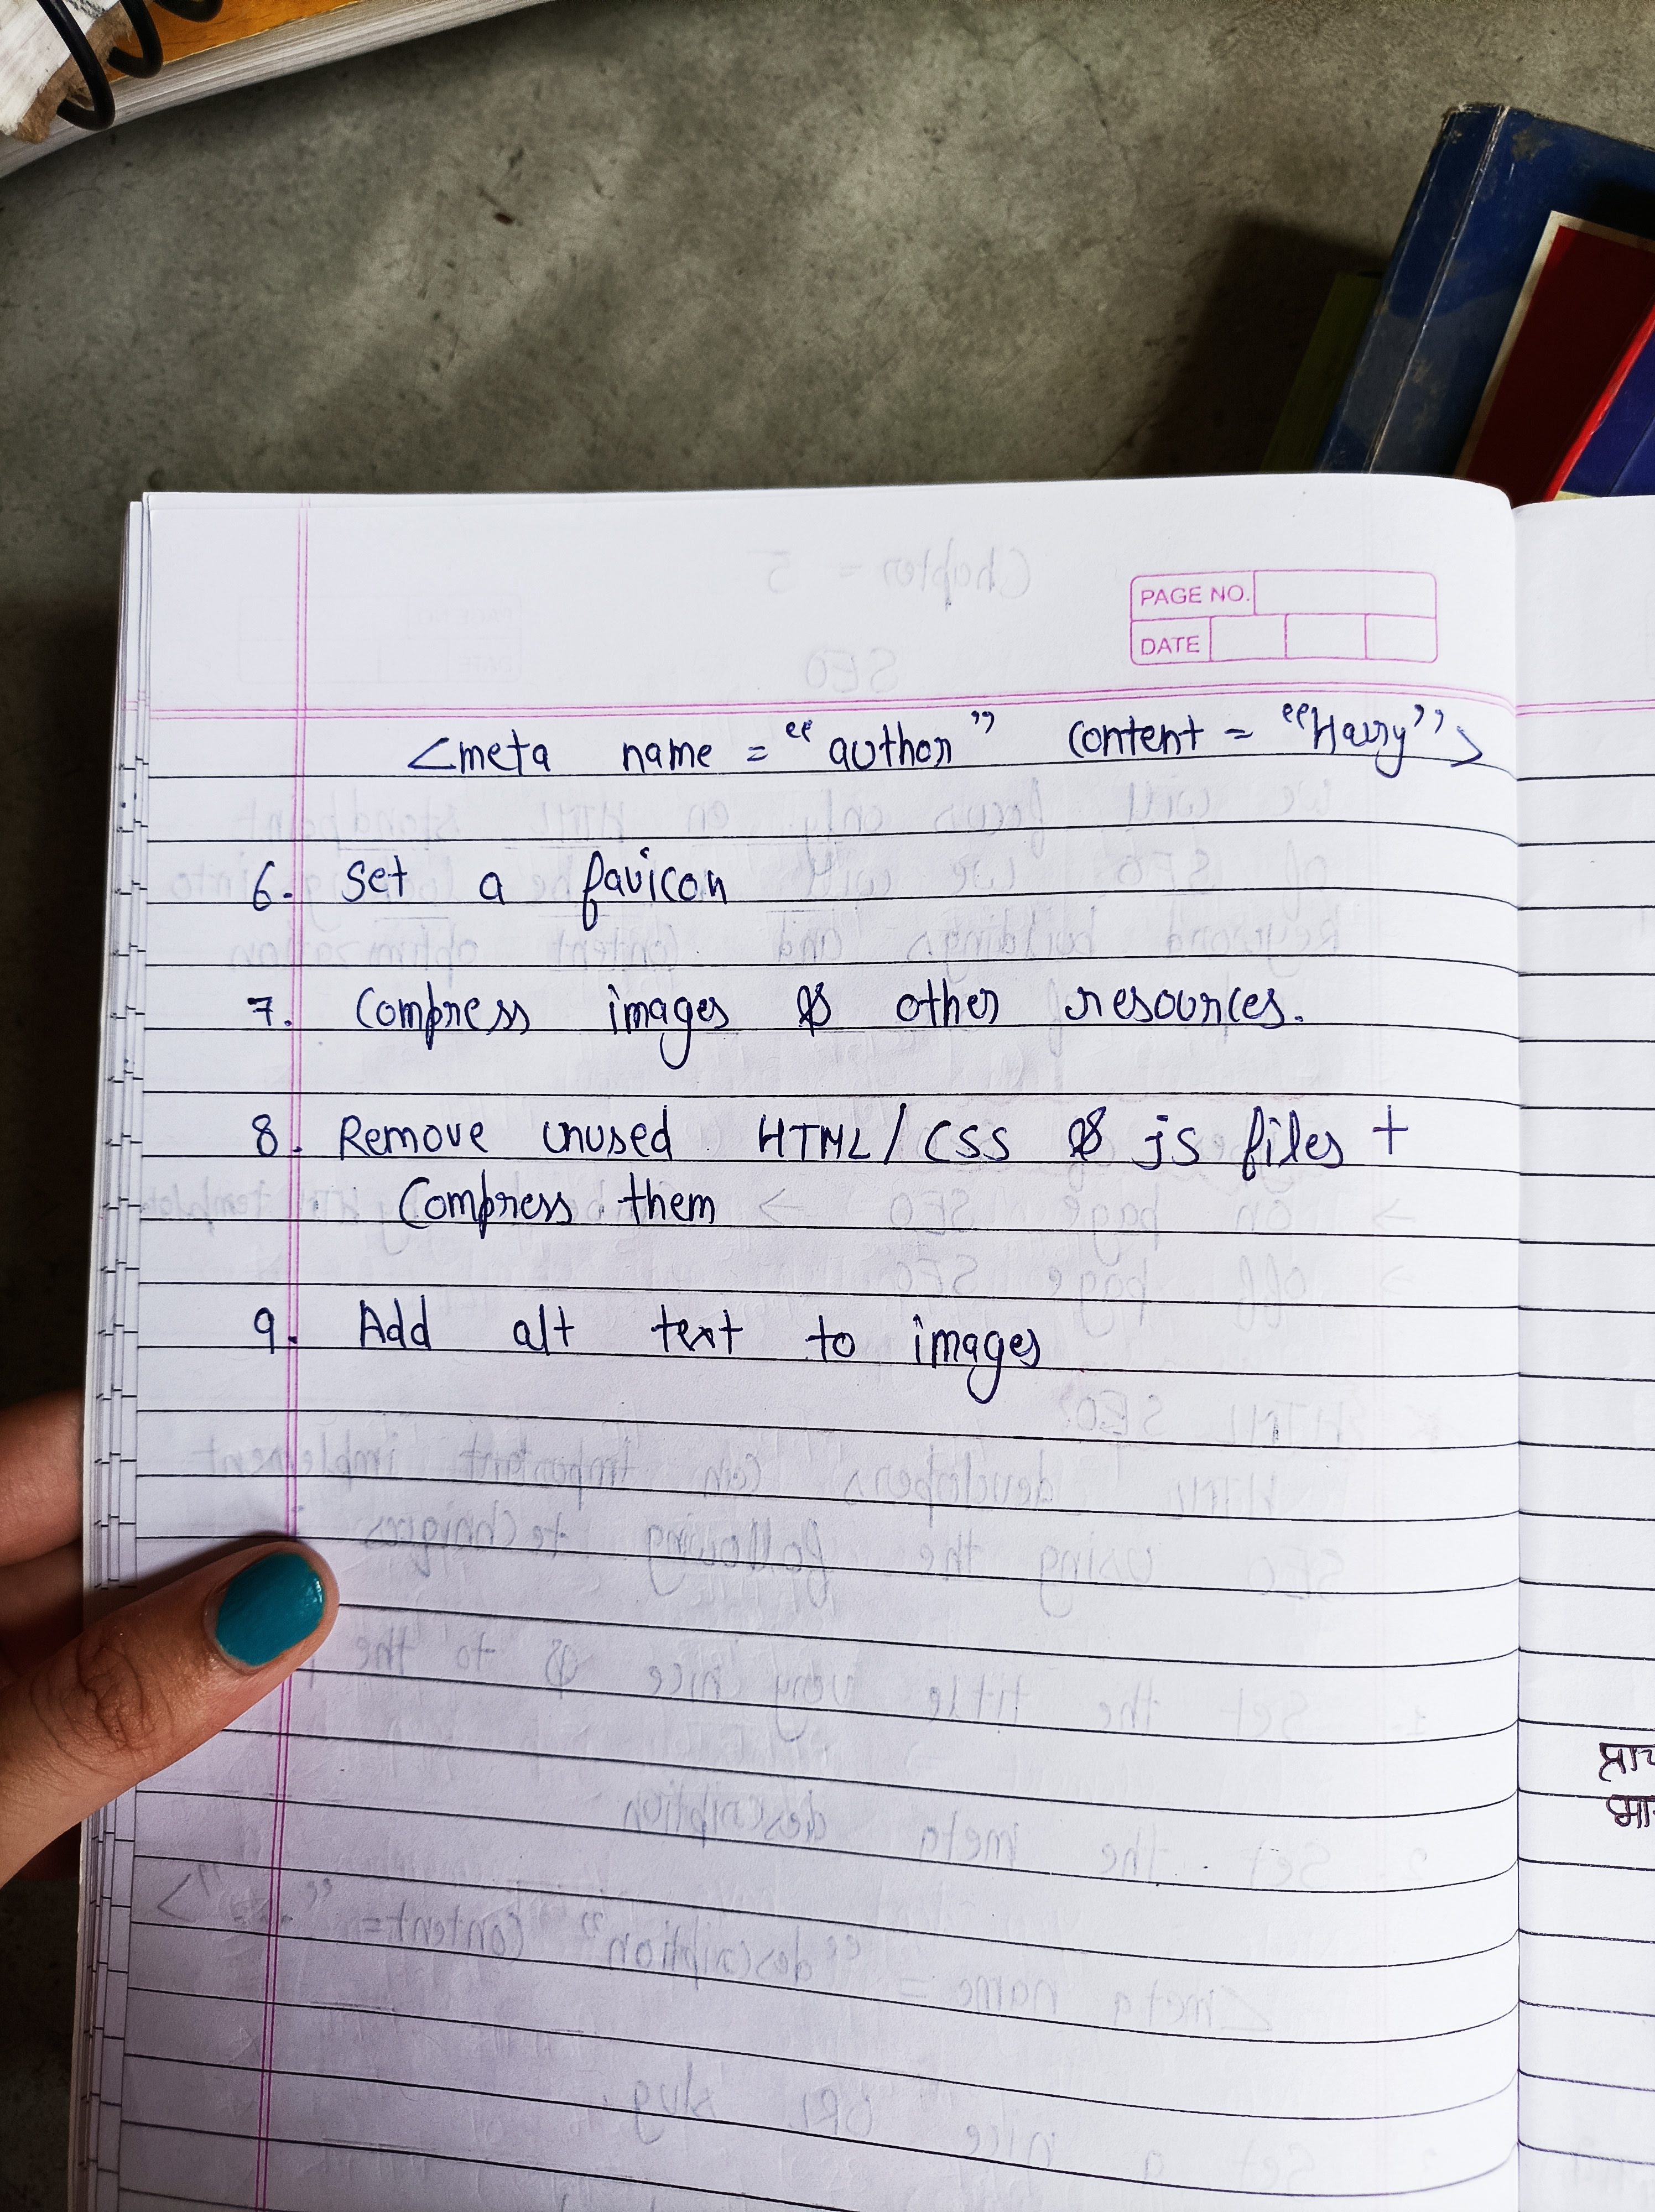 PAGE NO.
DATE
<meta name = "author" content = "Harry">
6. Set a favicon
7. Compress images & other resources.
8. Remove unused HTML/CSS & js files +
Compress them
9. Add alt text to images